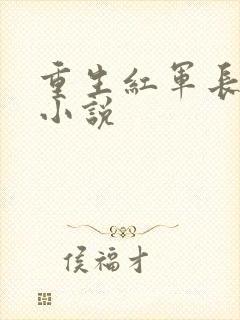 重生紅軍長
小說
侯福才